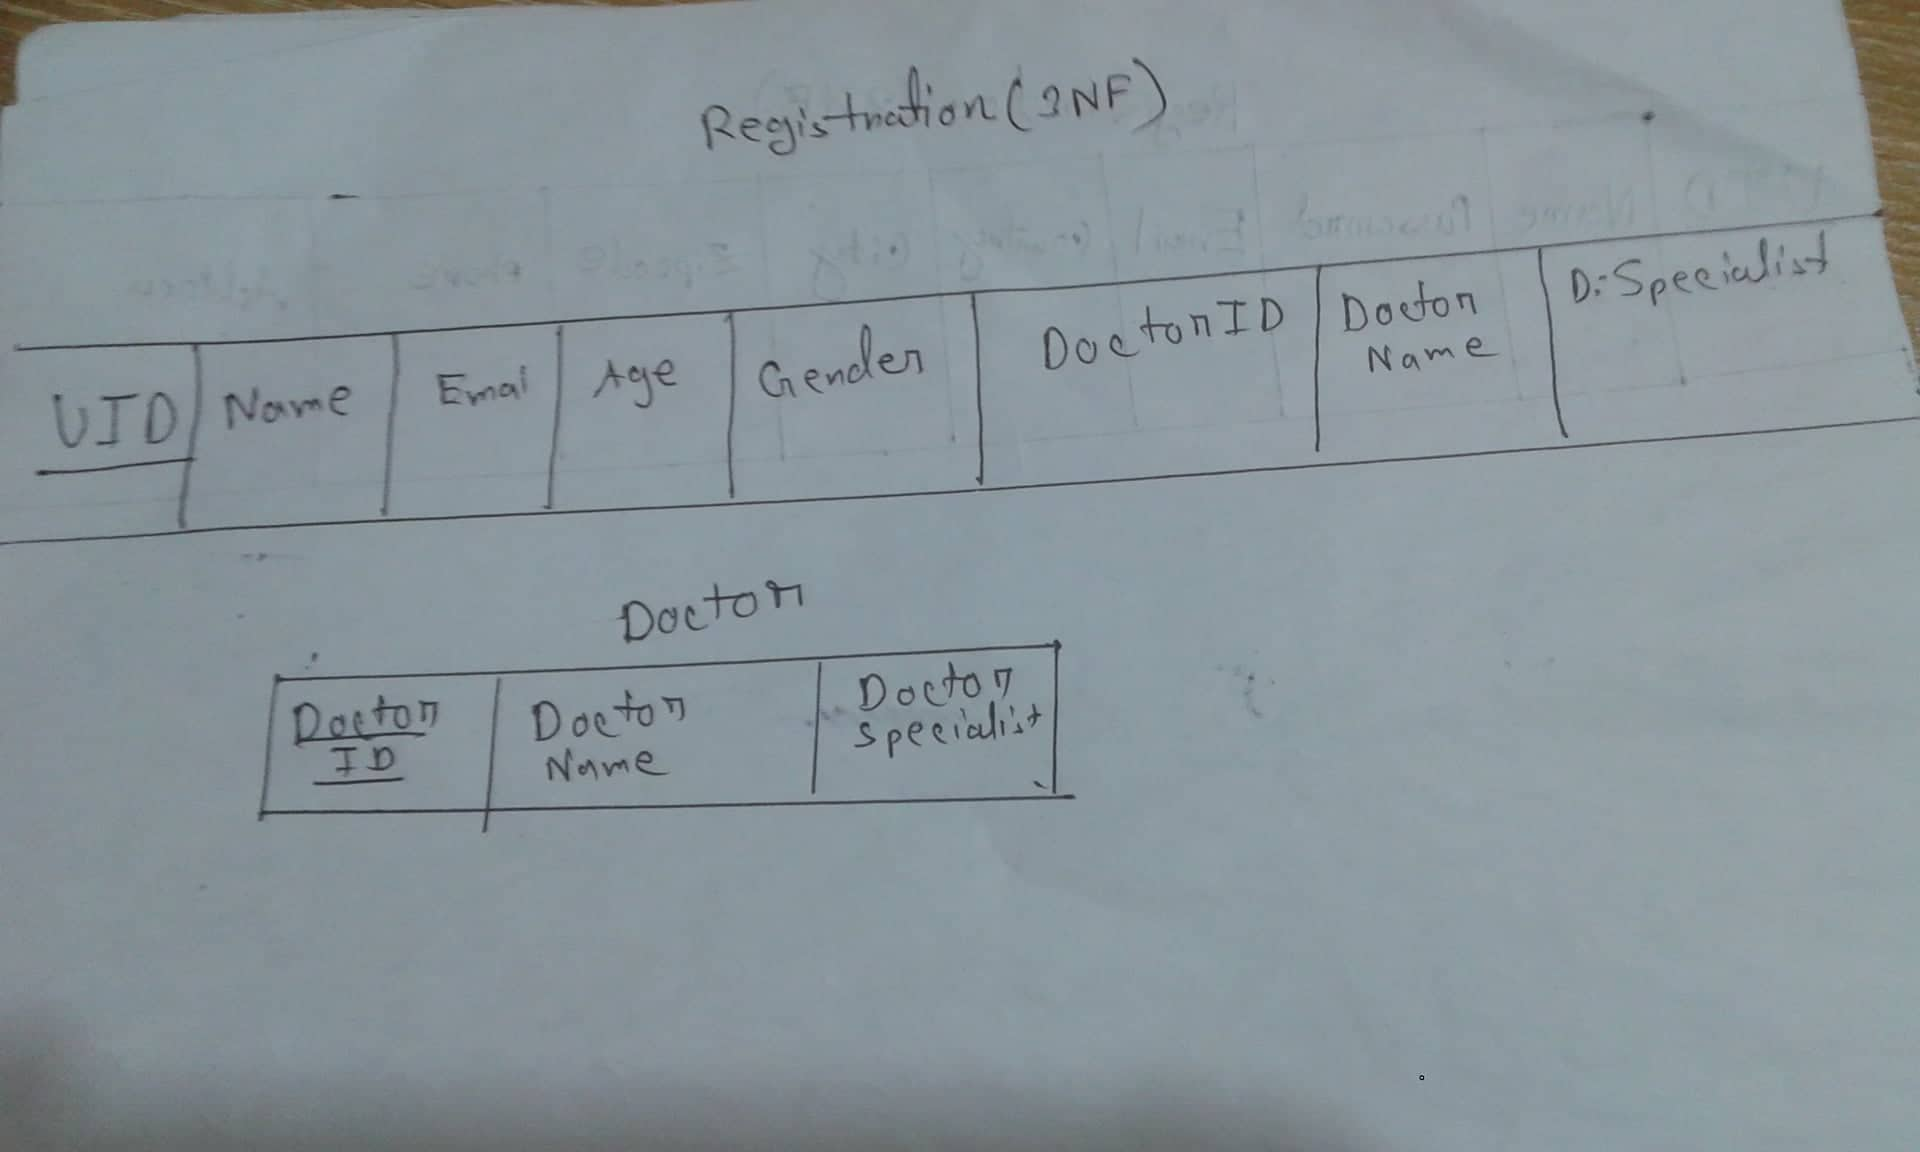 Registration (3NF)
UID Name Emai Age Gender Doctor ID Doctor Name D. Specialist
Doctor
Doctor ID Doctor Name Doctor specialist